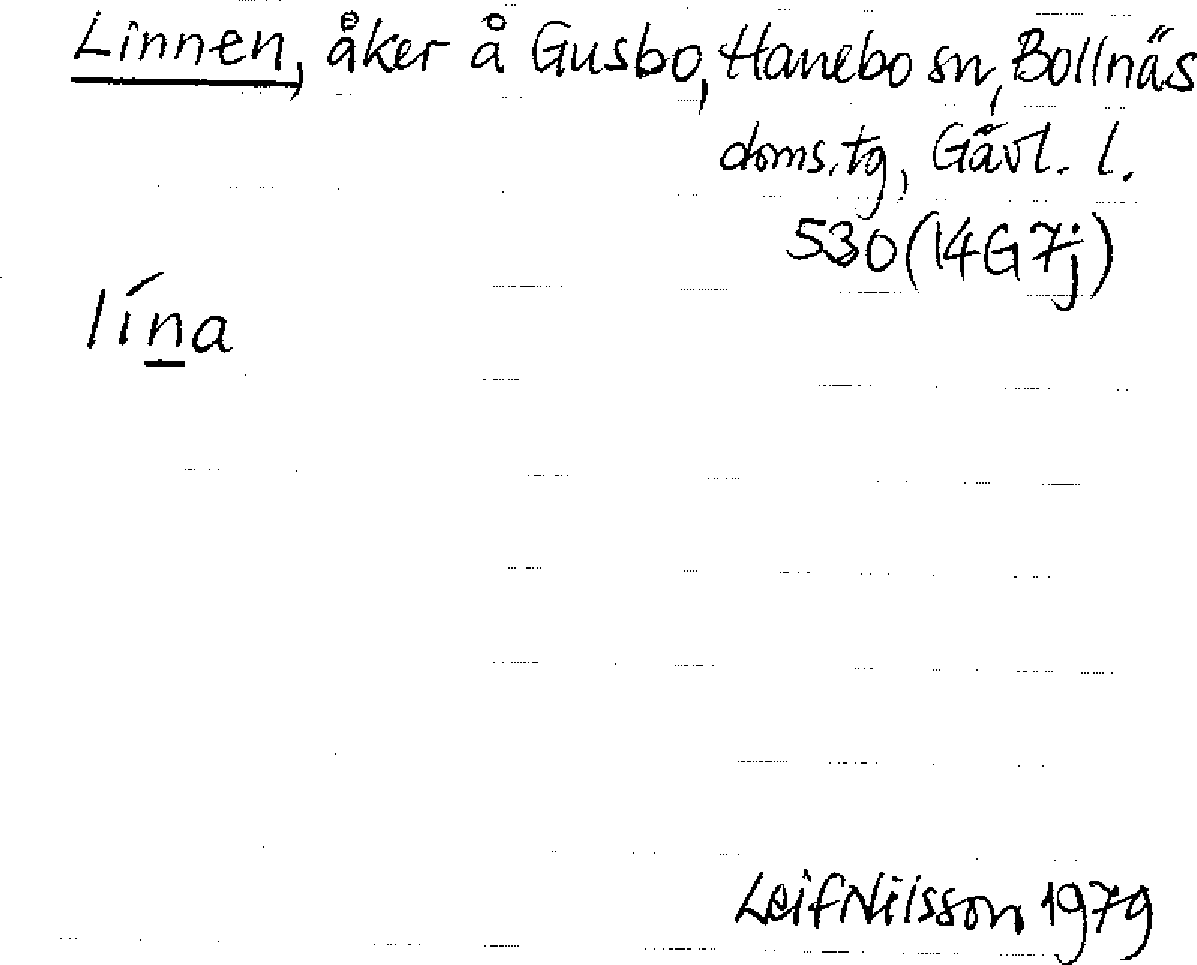 Linnen, åker å Gusbo, Hanebo sn, Bollnäs
doms.tg, Gävl. l.
530 (14G7j)
lína
Leif Nilsson 1979